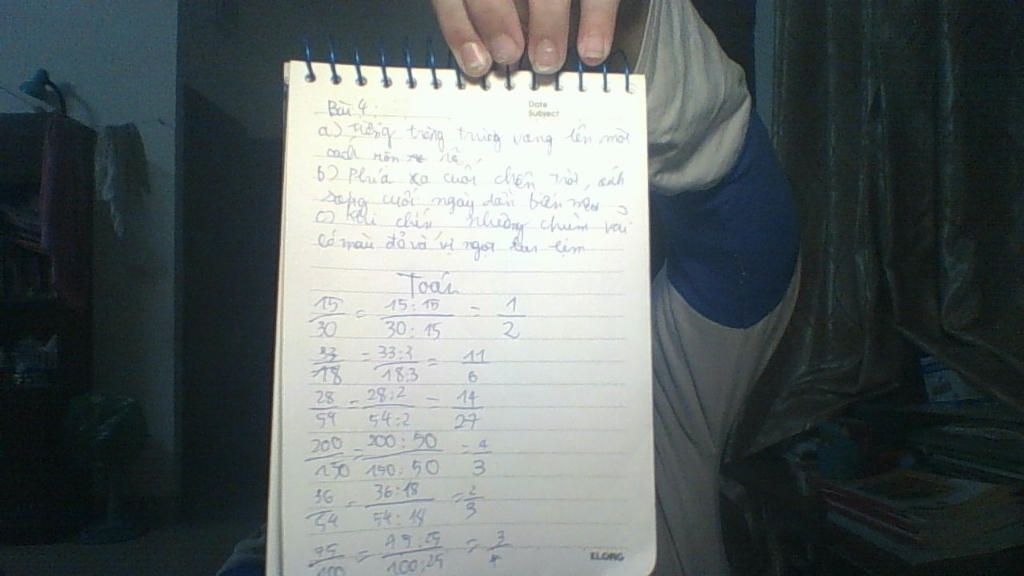 Date
Subject
Bài 4:
a) Tiếng trống trường vang lên một
cách rộn rã
b) Phía xa cuối chân trời, ánh
sáng cuối ngày dần
c) Khi chín những chùm vải
có màu đỏ và vị ngọt lịm
Toán
15/30 = 15:15/30:15 = 1/2
33/18 = 33:3/18:3 = 11/6
28/54 = 28:2/54:2 = 14/27
200/150 = 200:50/150:50 = 4/3
36/54 = 36:18/54:18 = 2/3
75/100 = :25/100:25 = 3/4
KLONG